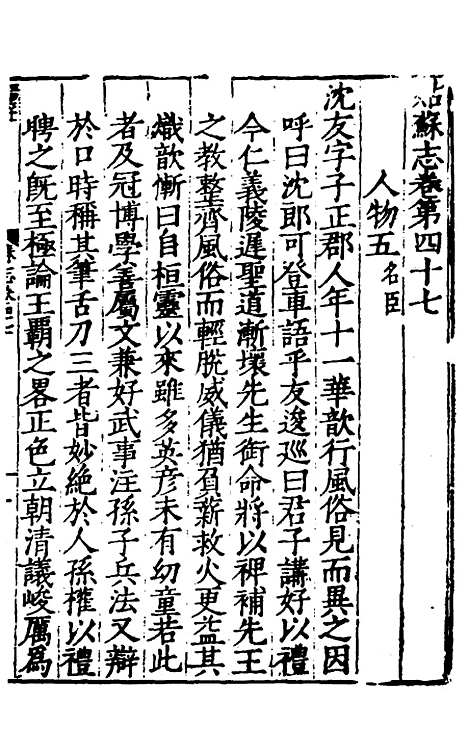 姑蘇志卷第四十七
人物五名臣
沈友字子正郡人年十一華歆行風俗見而異之因
呼曰沈郎可登車語乎友逡巡曰君子講好以禮
今仁義陵遲聖道漸壞先生銜命將以裨補先王
之教整齊風俗而輕脫威儀猶負薪救火更益其
熾歆慚曰自桓靈以來雖多英彥未有幼童若此
者及冠博學善屬文兼好武事注孫子兵法又辯
於口時稱其筆舌刀三者皆妙絕於人孫權以禮
聘之既至極論王霸之畧正色立朝清議峻厲為